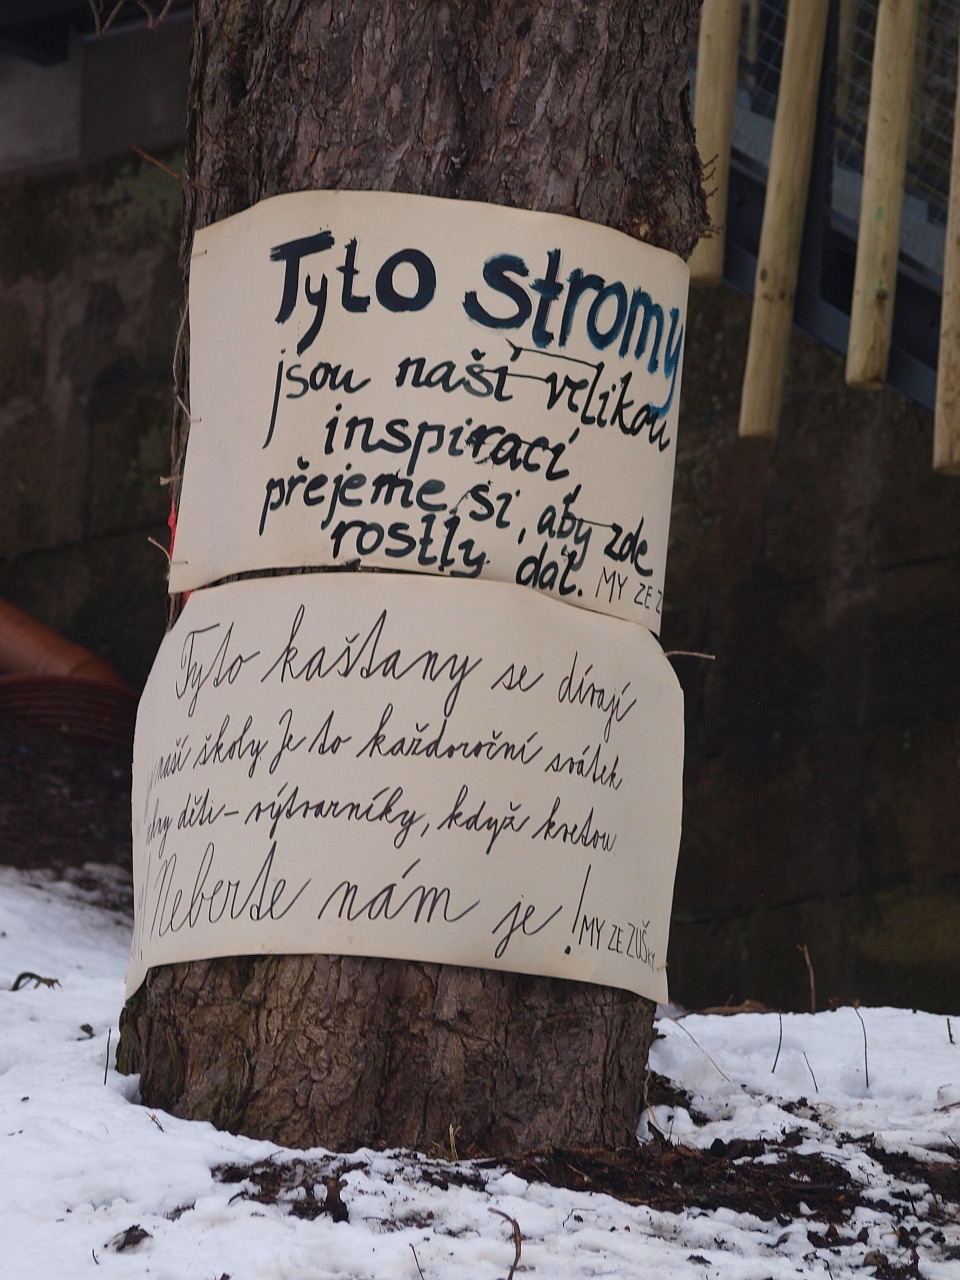 Tyto stromy
jsou naší velikou
inspirací
přejeme si, aby zde
rostly dál. MY ZE Z
Tyto kaštany se dívají
naší školy. Je to každoroční svátek
děti - výtvarníky, když kvetou
Neberte nám je! MY ZE ZUŠKY